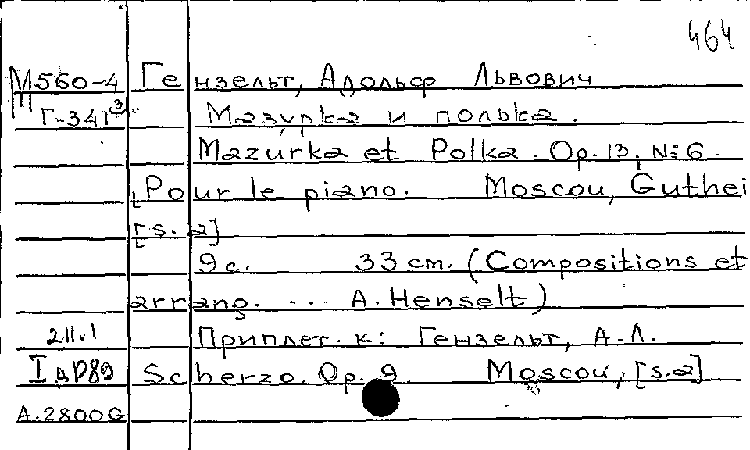 464
М560-4 Гензельт, Адольф Львович
Г-341 Мазурка и полька.
Mazurka et Polka. Op. 13, №6.
[Pour le piano. Moscou, Guthei
[s.a]
9 с. 33 cm. (Compositions et
arrang. ... A. Henselt)
211.1 Приплет. к: Гензельт, А.Л.
Scherzo. Op. 9. Moscou, [s.a]
A.2800G